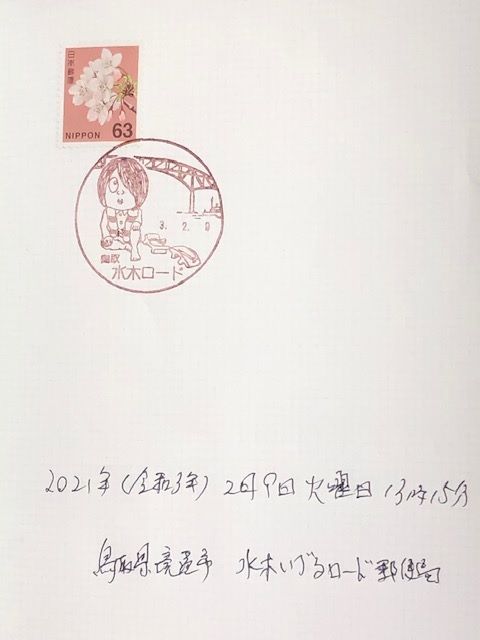 日本郵便
NIPPON 63
3.2.9
鳥取
水木ロード
2021年(令和3年) 2月9日 火曜日 13時15分
鳥取県境港市 水木しげるロード郵便局